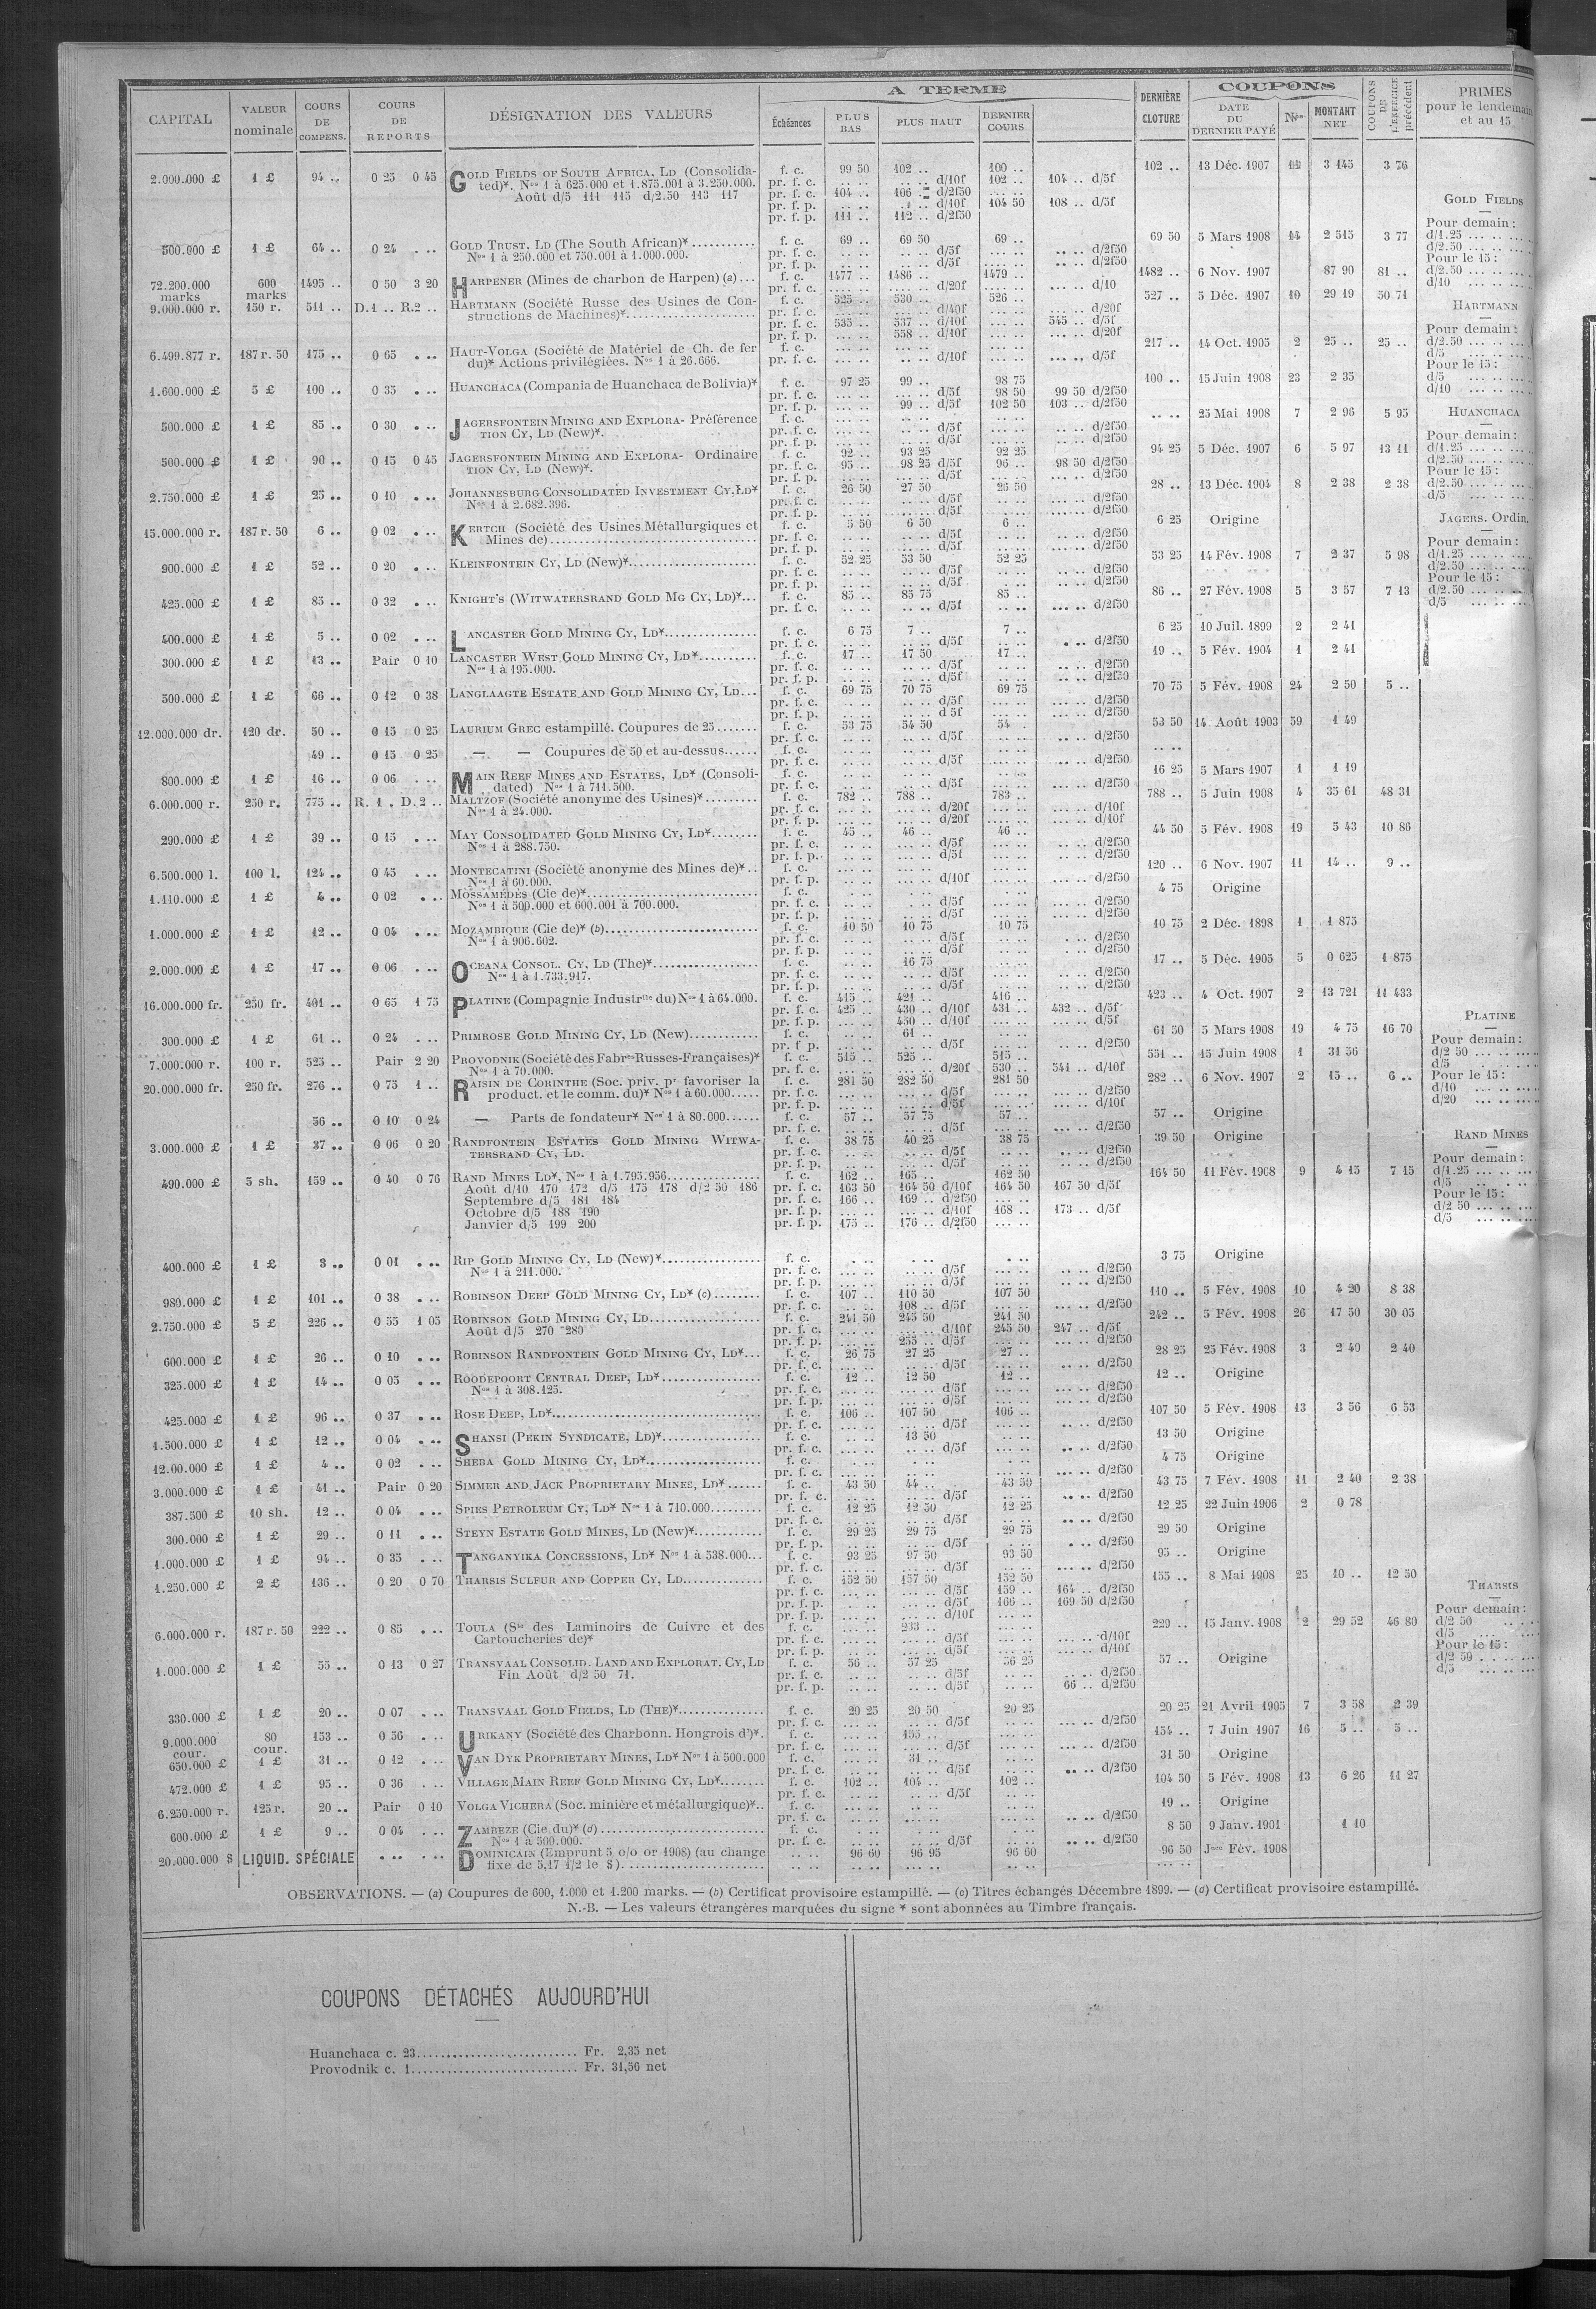 CAPITAL
VALEUR nominale
COURS DE COMPENS.
COURS DE REPORTS
DÉSIGNATION DES VALEURS
A TERME
Échéances
PLUS BAS
PLUS HAUT
DERNIER COURS
DERNIÈRE CLOTURE
COUPONS
DATE DU DERNIER PAYÉ
Nos
MONTANT NET
COUPONS DE L'EXERCICE précédent
PRIMES
pour le lendemain
et au 15
2.000.000 £ 1 £ 94 .. 0 25 0 45 GOLD FIELDS OF SOUTH AFRICA, LD (Consolida- f. c. 99 50 102 .. 100 .. 102 .. 13 Déc. 1907 3 145 3 76
ted)*. Nos 1 à 625.000 et 1.875.001 à 3.250.000. pr. f. c. d/10f 102 .. 104 .. d/5f
Août d/5 111 115 d/2.50 113 117 pr. f. c. 104 .. 106 d/2f50
pr. f. p. d/10f 104 50 108 .. d/5f
pr. f. p. 111 .. 112 .. d/2f50
500.000 £ 1 £ 64 .. 0 24 GOLD TRUST, LD (The South African)* f. c. 69 .. 69 50 69 .. 69 50 5 Mars 1908 2 515 3 77
Nos 1 à 250.000 et 750.001 à 1.000.000.
72.200.000 marks 600 marks 1495 .. 0 50 3 20 HARPENER (Mines de charbon de Harpen) (a) f. c. 1477 .. 1486 .. 1479 .. 1482 .. 6 Nov. 1907 87 90 81 ..
9.000.000 r. 150 r. 511 .. D.1 .. R.2 .. HARTMANN (Société Russe des Usines de Con- f. c. 525 .. 530 .. 526 .. 527 .. 5 Déc. 1907 10 29 19 50 71
structions de Machines)* pr. f. c. 535 .. 537 .. d/10f 545 .. d/5f
pr. f. p. 558 .. d/10f d/20f
6.499.877 r. 187 r. 50 175 .. 0 65 HAUT-VOLGA (Société de Matériel de Ch. de fer f. c. 217 .. 14 Oct. 1905 2 25 .. 25 ..
du)* Actions privilégiées. Nos 1 à 26.666. pr. f. c. d/10f d/5f
1.600.000 £ 5 £ 100 .. 0 35 HUANCHACA (Compania de Huanchaca de Bolivia)* f. c. 97 25 99 .. 98 75 100 .. 15 Juin 1908 23 2 35
pr. f. c. d/5f 98 50 99 50 d/2f50
pr. f. p. 99 .. d/5f 102 50 103 .. d/2f50
500.000 £ 1 £ 85 .. 0 30 JAGERSFONTEIN MINING AND EXPLORA- Préférence f. c. 25 Mai 1908 7 2 96 5 95
TION CY, LD (New)*.
500.000 £ 1 £ 90 .. 0 15 0 45 JAGERSFONTEIN MINING AND EXPLORA- Ordinaire f. c. 92 .. 93 25 92 25 94 25 5 Déc. 1907 6 5 97 13 11
TION CY, LD (New)*. pr. f. c. 95 .. 98 25 d/5f 96 .. 98 50 d/2f50
2.750.000 £ 1 £ 25 .. 0 10 JOHANNESBURG CONSOLIDATED INVESTMENT CY, LD* f. c. 26 50 27 50 26 50 28 .. 13 Déc. 1904 8 2 38 2 38
Nos 1 à 2.682.396.
15.000.000 r. 187 r. 50 6 .. 0 02 KERTCH (Société des Usines Métallurgiques et f. c. 5 50 6 50 6 .. 6 25 Origine
Mines de)
900.000 £ 1 £ 52 .. 0 20 KLEINFONTEIN CY, LD (New)* f. c. 52 25 53 50 52 25 53 25 14 Fév. 1908 7 2 37 5 98
425.000 £ 1 £ 85 .. 0 32 KNIGHT'S (WITWATERSRAND GOLD MG CY, LD)* f. c. 85 .. 85 75 85 .. 86 .. 27 Fév. 1908 5 3 57 7 13
400.000 £ 1 £ 5 .. 0 02 LANCASTER GOLD MINING CY, LD* f. c. 6 75 7 .. 7 .. 6 25 10 Juil. 1899 2 2 41
300.000 £ 1 £ 13 .. Pair 0 10 LANCASTER WEST GOLD MINING CY, LD* f. c. 17 .. 17 50 17 .. 19 .. 5 Fév. 1904 1 2 41
Nos 1 à 195.000.
500.000 £ 1 £ 66 .. 0 12 0 38 LANGLAAGTE ESTATE AND GOLD MINING CY, LD f. c. 69 75 70 75 69 75 70 75 5 Fév. 1908 24 2 50 5 ..
12.000.000 dr. 120 dr. 50 .. 0 15 0 25 LAURIUM GREC estampillé. Coupures de 25 f. c. 53 75 54 50 54 .. 53 50 14 Août 1903 59 1 49
49 .. 0 15 0 25 — — Coupures de 50 et au-dessus f. c.
800.000 £ 1 £ 16 .. 0 06 MAIN REEF MINES AND ESTATES, LD* (Consoli- f. c. 16 25 5 Mars 1907 1 1 19
dated) Nos 1 à 711.500.
6.000.000 r. 250 r. 775 .. R. 1 . D. 2 .. MALTZOF (Société anonyme des Usines)* f. c. 782 .. 788 .. 783 .. 788 .. 5 Juin 1908 4 35 61 48 31
Nos 1 à 24.000.
290.000 £ 1 £ 39 .. 0 15 MAY CONSOLIDATED GOLD MINING CY, LD* f. c. 45 .. 46 .. 46 .. 44 50 5 Fév. 1908 19 5 43 10 86
Nos 1 à 288.750.
6.500.000 l. 100 l. 124 .. 0 45 MONTECATINI (Société anonyme des Mines de)* f. c. 120 .. 6 Nov. 1907 11 14 .. 9 ..
Nos 1 à 60.000.
1.110.000 £ 1 £ 4 .. 0 02 MOSSAMÉDÈS (Cie de)* f. c. 4 75 Origine
Nos 1 à 500.000 et 600.001 à 700.000.
1.000.000 £ 1 £ 12 .. 0 04 MOZAMBIQUE (Cie de)* (b) f. c. 10 50 10 75 10 75 10 75 2 Déc. 1898 1 1 875
Nos 1 à 906.602.
2.000.000 £ 1 £ 17 .. 0 06 OCEANA CONSOL. CY, LD (The)* f. c. 16 75 17 .. 5 Déc. 1905 5 0 625 1 875
Nos 1 à 1.733.917.
16.000.000 fr. 250 fr. 401 .. 0 65 1 75 PLATINE (Compagnie Industrlle du) Nos 1 à 64.000. f. c. 415 .. 421 .. 416 .. 423 .. 4 Oct. 1907 2 13 721 11 433
pr. f. c. 425 .. 430 .. d/10f 431 .. 432 .. d/5f
pr. f. p. 450 .. d/10f d/5f
300.000 £ 1 £ 61 .. 0 24 PRIMROSE GOLD MINING CY, LD (New) f. c. 61 .. 61 50 5 Mars 1908 19 4 75 16 70
7.000.000 r. 100 r. 525 .. Pair 2 20 PROVODNIK (Société des Fabres Russes-Françaises)* f. c. 515 .. 525 .. 515 .. 551 .. 15 Juin 1908 1 31 56
Nos 1 à 70.000. pr. f. c. d/20f 530 .. 541 .. d/10f
20.000.000 fr. 250 fr. 276 .. 0 75 1 .. RAISIN DE CORINTHE (Soc. priv. pr favoriser la f. c. 281 50 282 50 281 50 282 .. 6 Nov. 1907 2 15 .. 6 ..
product. et le comm. du)* Nos 1 à 60.000
56 .. 0 10 0 24 — Parts de fondateur* Nos 1 à 80.000 f. c. 57 .. 57 75 57 .. 57 .. Origine
3.000.000 £ 1 £ 37 .. 0 06 0 20 RANDFONTEIN ESTATES GOLD MINING WITWA- f. c. 38 75 40 25 38 75 39 50 Origine
TERSRAND CY, LD.
490.000 £ 5 sh. 159 .. 0 40 0 76 RAND MINES LD*, Nos 1 à 1.795.956 f. c. 162 .. 165 .. 162 50 164 50 11 Fév. 1908 9 4 15 7 15
Août d/10 170 172 d/5 175 178 d/2 50 186 pr. f. c. 163 50 164 50 d/10f 164 50 167 50 d/5f
Septembre d/5 181 184 pr. f. c. 166 .. 169 .. d/2f50
Octobre d/5 188 190 pr. f. p. d/10f 168 .. 173 .. d/5f
Janvier d/5 199 200 pr. f. p. 175 .. 176 .. d/2f50
400.000 £ 1 £ 3 .. 0 01 RIP GOLD MINING CY, LD (New)* f. c. 3 75 Origine
Nos 1 à 211.000.
980.000 £ 1 £ 101 .. 0 38 ROBINSON DEEP GOLD MINING CY, LD* (c) f. c. 107 .. 110 50 107 50 110 .. 5 Fév. 1908 10 4 20 8 38
pr. f. c. 108 .. d/5f d/2f50
2.750.000 £ 5 £ 226 .. 0 55 1 05 ROBINSON GOLD MINING CY, LD f. c. 241 50 245 50 241 50 242 .. 5 Fév. 1908 26 17 50 30 05
Août d/5 270 280 pr. f. c. d/10f 245 50 247 .. d/5f
pr. f. p. 255 .. d/5f d/2f50
600.000 £ 1 £ 26 .. 0 10 ROBINSON RANDFONTEIN GOLD MINING CY, LD* f. c. 26 75 27 25 27 .. 28 25 25 Fév. 1908 3 2 40 2 40
325.000 £ 1 £ 14 .. 0 05 ROODEPOORT CENTRAL DEEP, LD* f. c. 12 .. 12 50 12 .. 12 .. Origine
Nos 1 à 308.125.
425.000 £ 1 £ 96 .. 0 37 ROSE DEEP, LD* f. c. 106 .. 107 50 106 .. 107 50 5 Fév. 1908 13 3 56 6 53
1.500.000 £ 1 £ 12 .. 0 04 SHANSI (PEKIN SYNDICATE, LD)* f. c. 13 50 13 50 Origine
12.00.000 £ 1 £ 4 .. 0 02 SHEBA GOLD MINING CY, LD* f. c. 4 75 Origine
3.000.000 £ 1 £ 41 .. Pair 0 20 SIMMER AND JACK PROPRIETARY MINES, LD* f. c. 43 50 44 .. 43 50 43 75 7 Fév. 1908 11 2 40 2 38
387.500 £ 10 sh. 12 .. 0 04 SPIES PETROLEUM CY, LD* Nos 1 à 710.000 f. c. 12 25 12 50 12 25 12 25 22 Juin 1906 2 0 78
300.000 £ 1 £ 29 .. 0 11 STEYN ESTATE GOLD MINES, LD (New)* f. c. 29 25 29 75 29 75 29 50 Origine
1.000.000 £ 1 £ 94 .. 0 35 TANGANYIKA CONCESSIONS, LD* Nos 1 à 538.000 f. c. 93 25 97 50 93 50 95 .. Origine
1.250.000 £ 2 £ 136 .. 0 20 0 70 THARSIS SULFUR AND COPPER CY, LD f. c. 152 50 157 50 152 50 155 .. 8 Mai 1908 25 10 .. 12 50
pr. f. c. d/5f 159 .. 164 .. d/2f50
pr. f. p. d/5f 166 .. 169 50 d/2f50
pr. f. p. d/10f
6.000.000 r. 187 r. 50 222 .. 0 85 TOULA (Sté des Laminoirs de Cuivre et des f. c. 233 .. 229 .. 15 Janv. 1908 2 29 52 46 80
Cartoucheries de)*
1.000.000 £ 1 £ 55 .. 0 13 0 27 TRANSVAAL CONSOLID. LAND AND EXPLORAT. CY, LD f. c. 56 .. 57 25 56 25 57 .. Origine
Fin Août d/2 50 71. pr. f. c. d/5f d/2f50
pr. f. p. d/5f 66 .. d/2f50
330.000 £ 1 £ 20 .. 0 07 TRANSVAAL GOLD FIELDS, LD (THE)* f. c. 20 25 20 50 20 25 20 25 21 Avril 1905 7 3 58 2 39
9.000.000 cour. 80 cour. 153 .. 0 56 URIKANY (Société des Charbonn. Hongrois d')* f. c. 155 .. 154 .. 7 Juin 1907 16 5 .. 5 ..
650.000 £ 1 £ 31 .. 0 12 VAN DYK PROPRIETARY MINES, LD* Nos 1 à 500.000 f. c. 31 .. 31 50 Origine
472.000 £ 1 £ 95 .. 0 36 VILLAGE MAIN REEF GOLD MINING CY, LD* f. c. 102 .. 104 .. 102 .. 104 50 5 Fév. 1908 13 6 26 11 27
6.250.000 r. 125 r. 20 .. Pair 0 10 VOLGA VICHERA (Soc. minière et métallurgique)* f. c. 19 .. Origine
600.000 £ 1 £ 9 .. 0 04 ZAMBEZE (Cie du)* (d) f. c. 8 50 9 Janv. 1901 1 10
Nos 1 à 500.000. pr. f. c. d/5f d/2f50
20.000.000 $ LIQUID. SPÉCIALE DOMINICAIN (Emprunt 5 o/o or 1908) (au change 96 60 96 95 96 60 96 50 Jce Fév. 1908
fixe de 5,17 1/2 le $)
GOLD FIELDS
Pour demain :
d/1.25
d/2.50
Pour le 15 :
d/2.50
d/10
HARTMANN
Pour demain :
d/2.50
d/5
Pour le 15 :
d/5
d/10
HUANCHACA
Pour demain :
d/1.25
d/2.50
Pour le 15 :
d/2.50
d/5
JAGERS. Ordin.
Pour demain :
d/1.25
d/2.50
Pour le 15 :
d/2.50
d/5
PLATINE
Pour demain :
d/2 50
d/5
Pour le 15 :
d/10
d/20
RAND MINES
Pour demain :
d/1.25
d/5
Pour le 15 :
d/2 50
d/5
THARSIS
Pour demain :
d/2 50
d/5
Pour le 15 :
d/2 50
d/5
OBSERVATIONS. — (a) Coupures de 600, 1.000 et 1.200 marks. — (b) Certificat provisoire estampillé. — (c) Titres échangés Décembre 1899. — (d) Certificat provisoire estampillé.
N.-B. — Les valeurs étrangères marquées du signe * sont abonnées au Timbre français.
COUPONS DÉTACHÉS AUJOURD'HUI
Huanchaca c. 23.......................... Fr. 2,35 net
Provodnik c. 1........................... Fr. 31,56 net